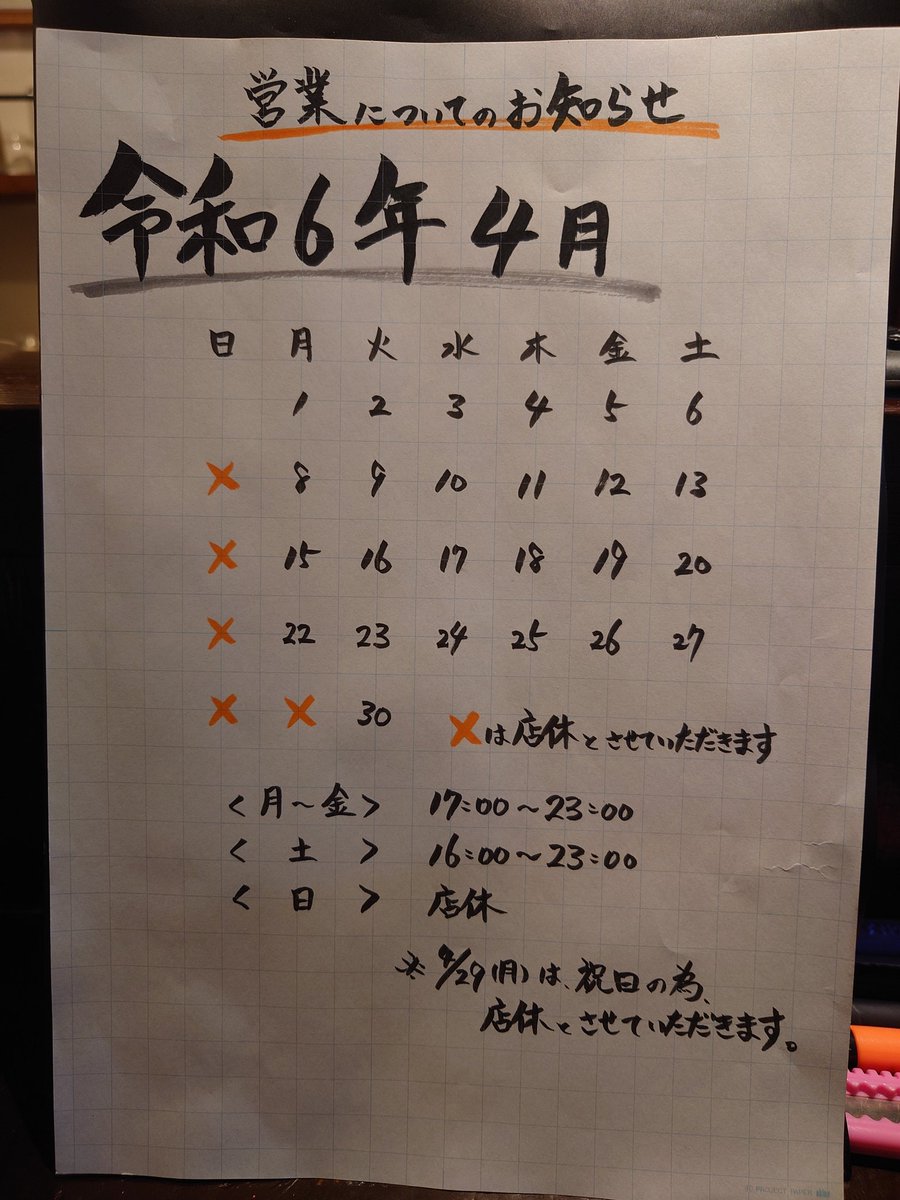 営業についてのお知らせ
令和6年4月
日 月 火 水 木 金 土
1 2 3 4 5 6
× 8 9 10 11 12 13
× 15 16 17 18 19 20
× 22 23 24 25 26 27
× × 30 ×は店休とさせていただきます
<月~金> 17:00~23:00
< 土 > 16:00~23:00
< 日 > 店休
※4/29(月)は、祝日の為、
店休とさせていただきます。